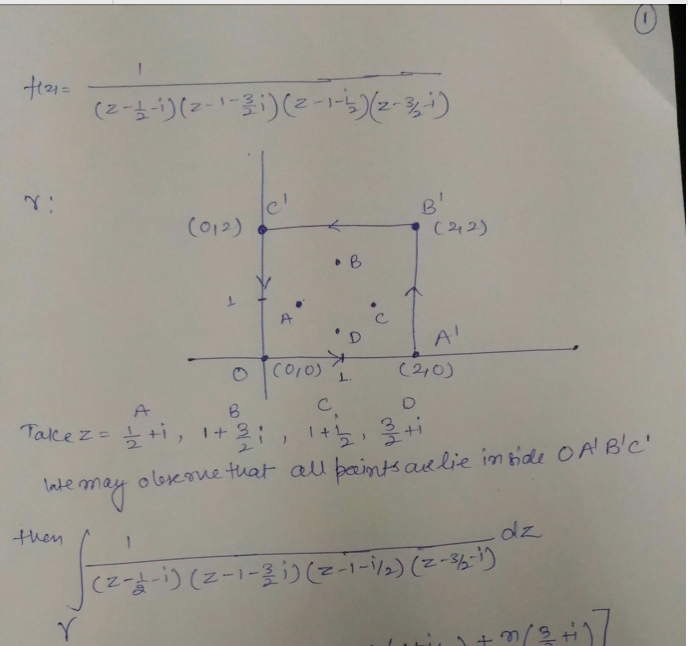 ①
f(z) = 1 / (z-1/2-i)(z-1-3/2 i)(z-1-i/2)(z-3/2-i)
γ:
C' B'
(0,2) (2,2)
B
1
A C
D A'
O (0,0) 1 (2,0)
A B C D
Take z = 1/2+i, 1+3/2 i, 1+i/2, 3/2+i
We may observe that all points are lie inside OA'B'C'
then ∫γ 1 / (z-1/2-i)(z-1-3/2 i)(z-1-i/2)(z-3/2-i) dz
+ n(3/2+i)]